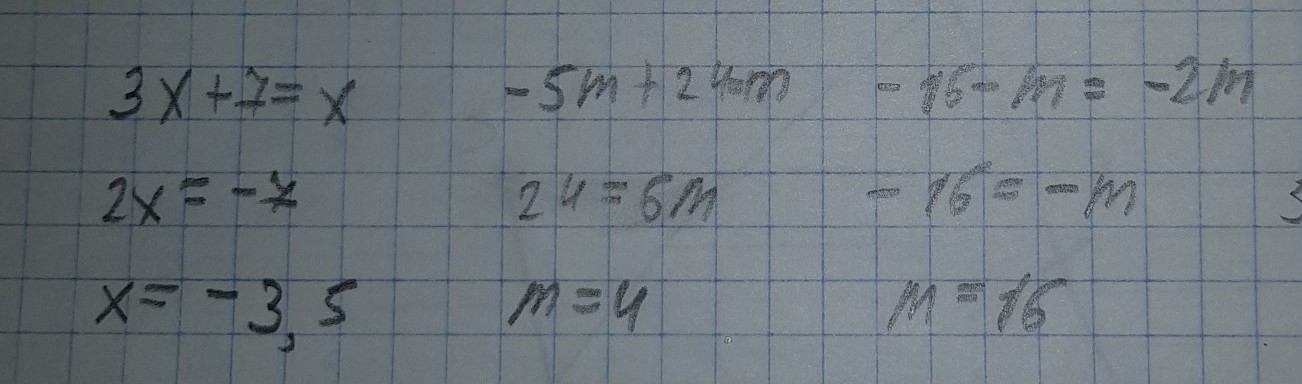 3x+7=x
2x=-7
x=-3,5
-5m+24=m
24=6m
m=4
-16-m=-2m
-16=-m
m=16